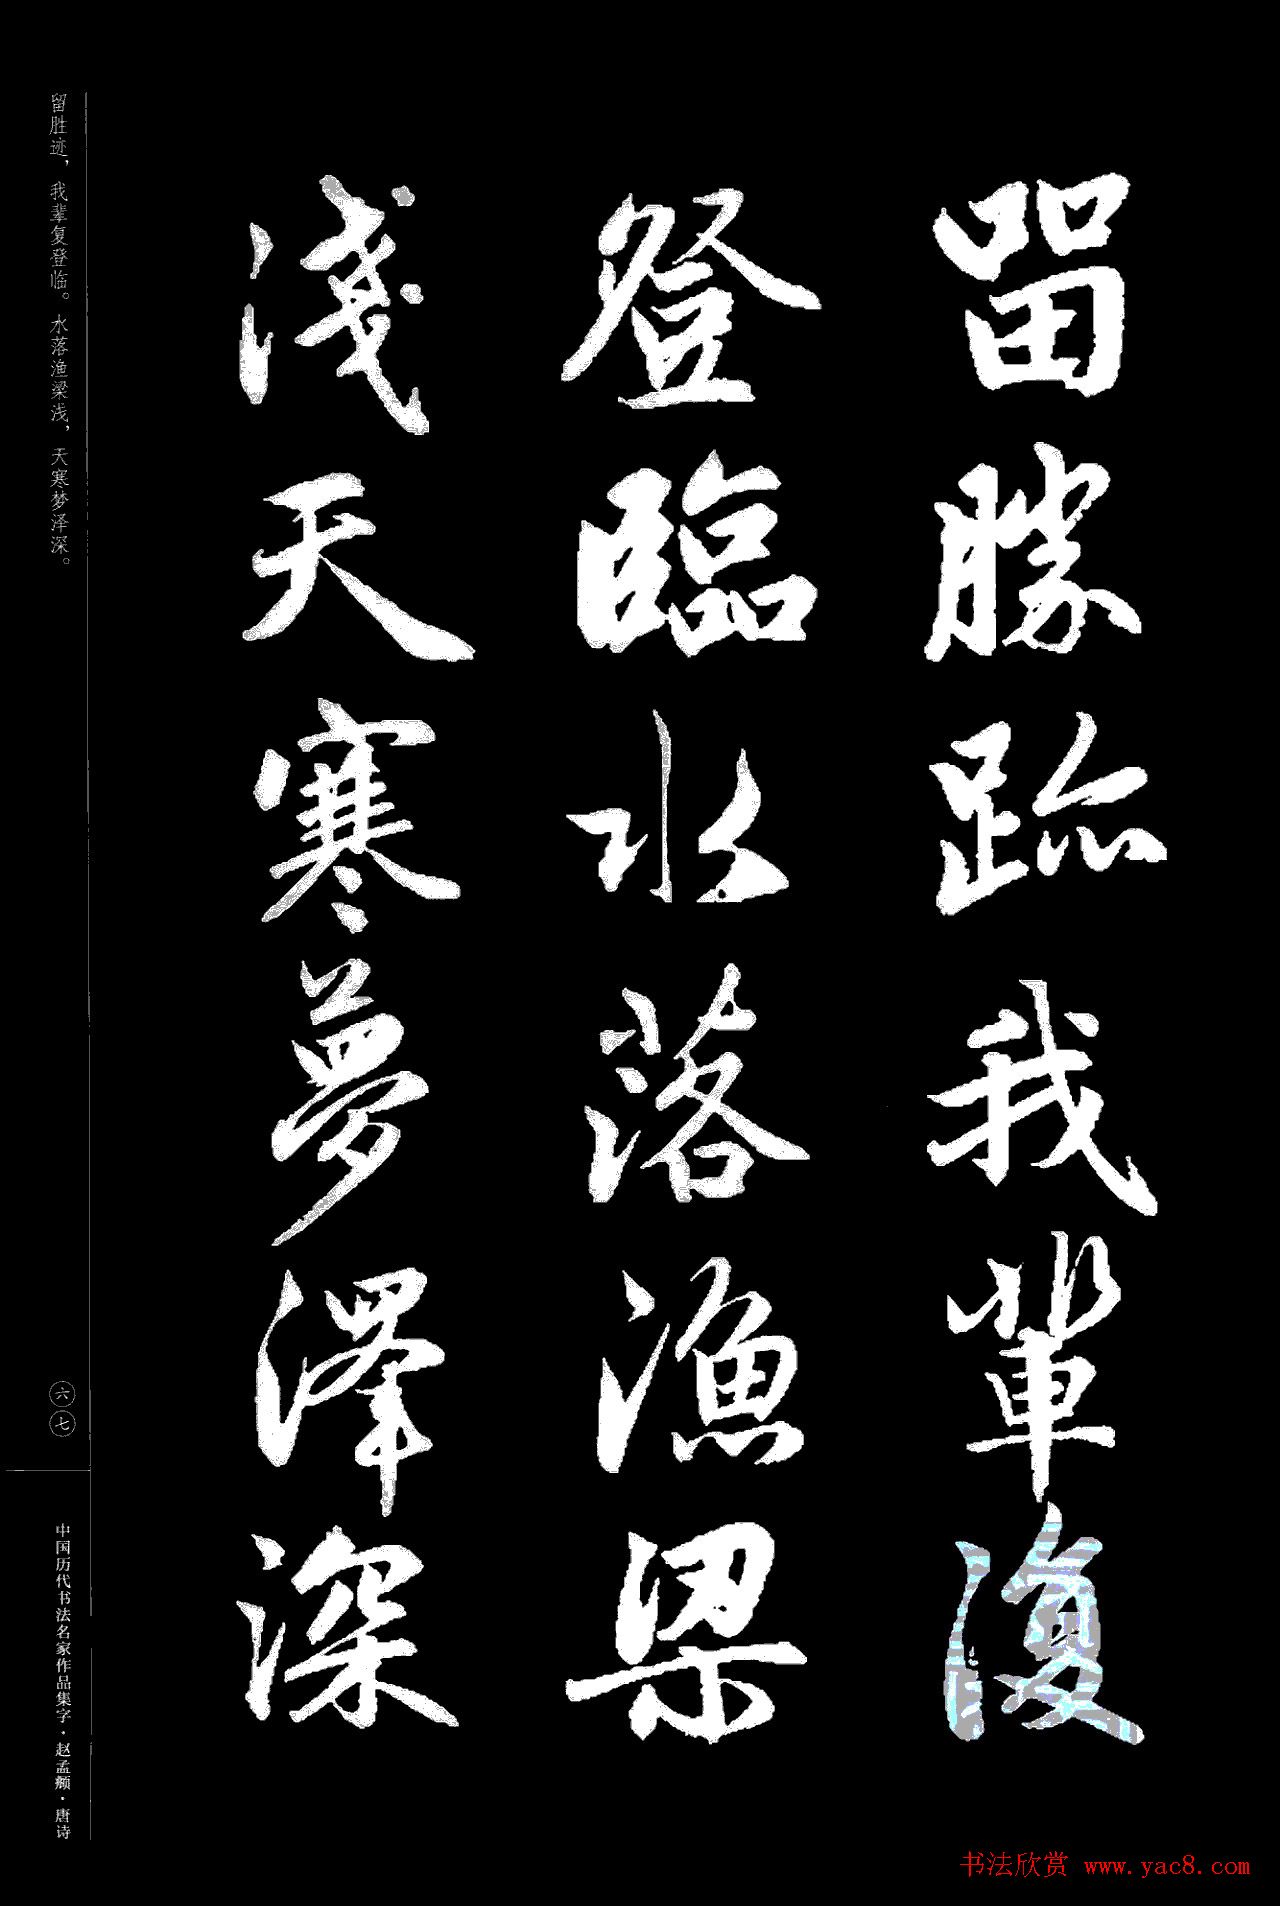 留勝跡我輩復
登臨水落漁梁
淺天寒夢澤深
留胜迹，我辈复登临。水落渔梁浅，天寒梦泽深。
六七
中国历代书法名家作品集字·赵孟頫·唐诗
书法欣赏 www.yac8.com